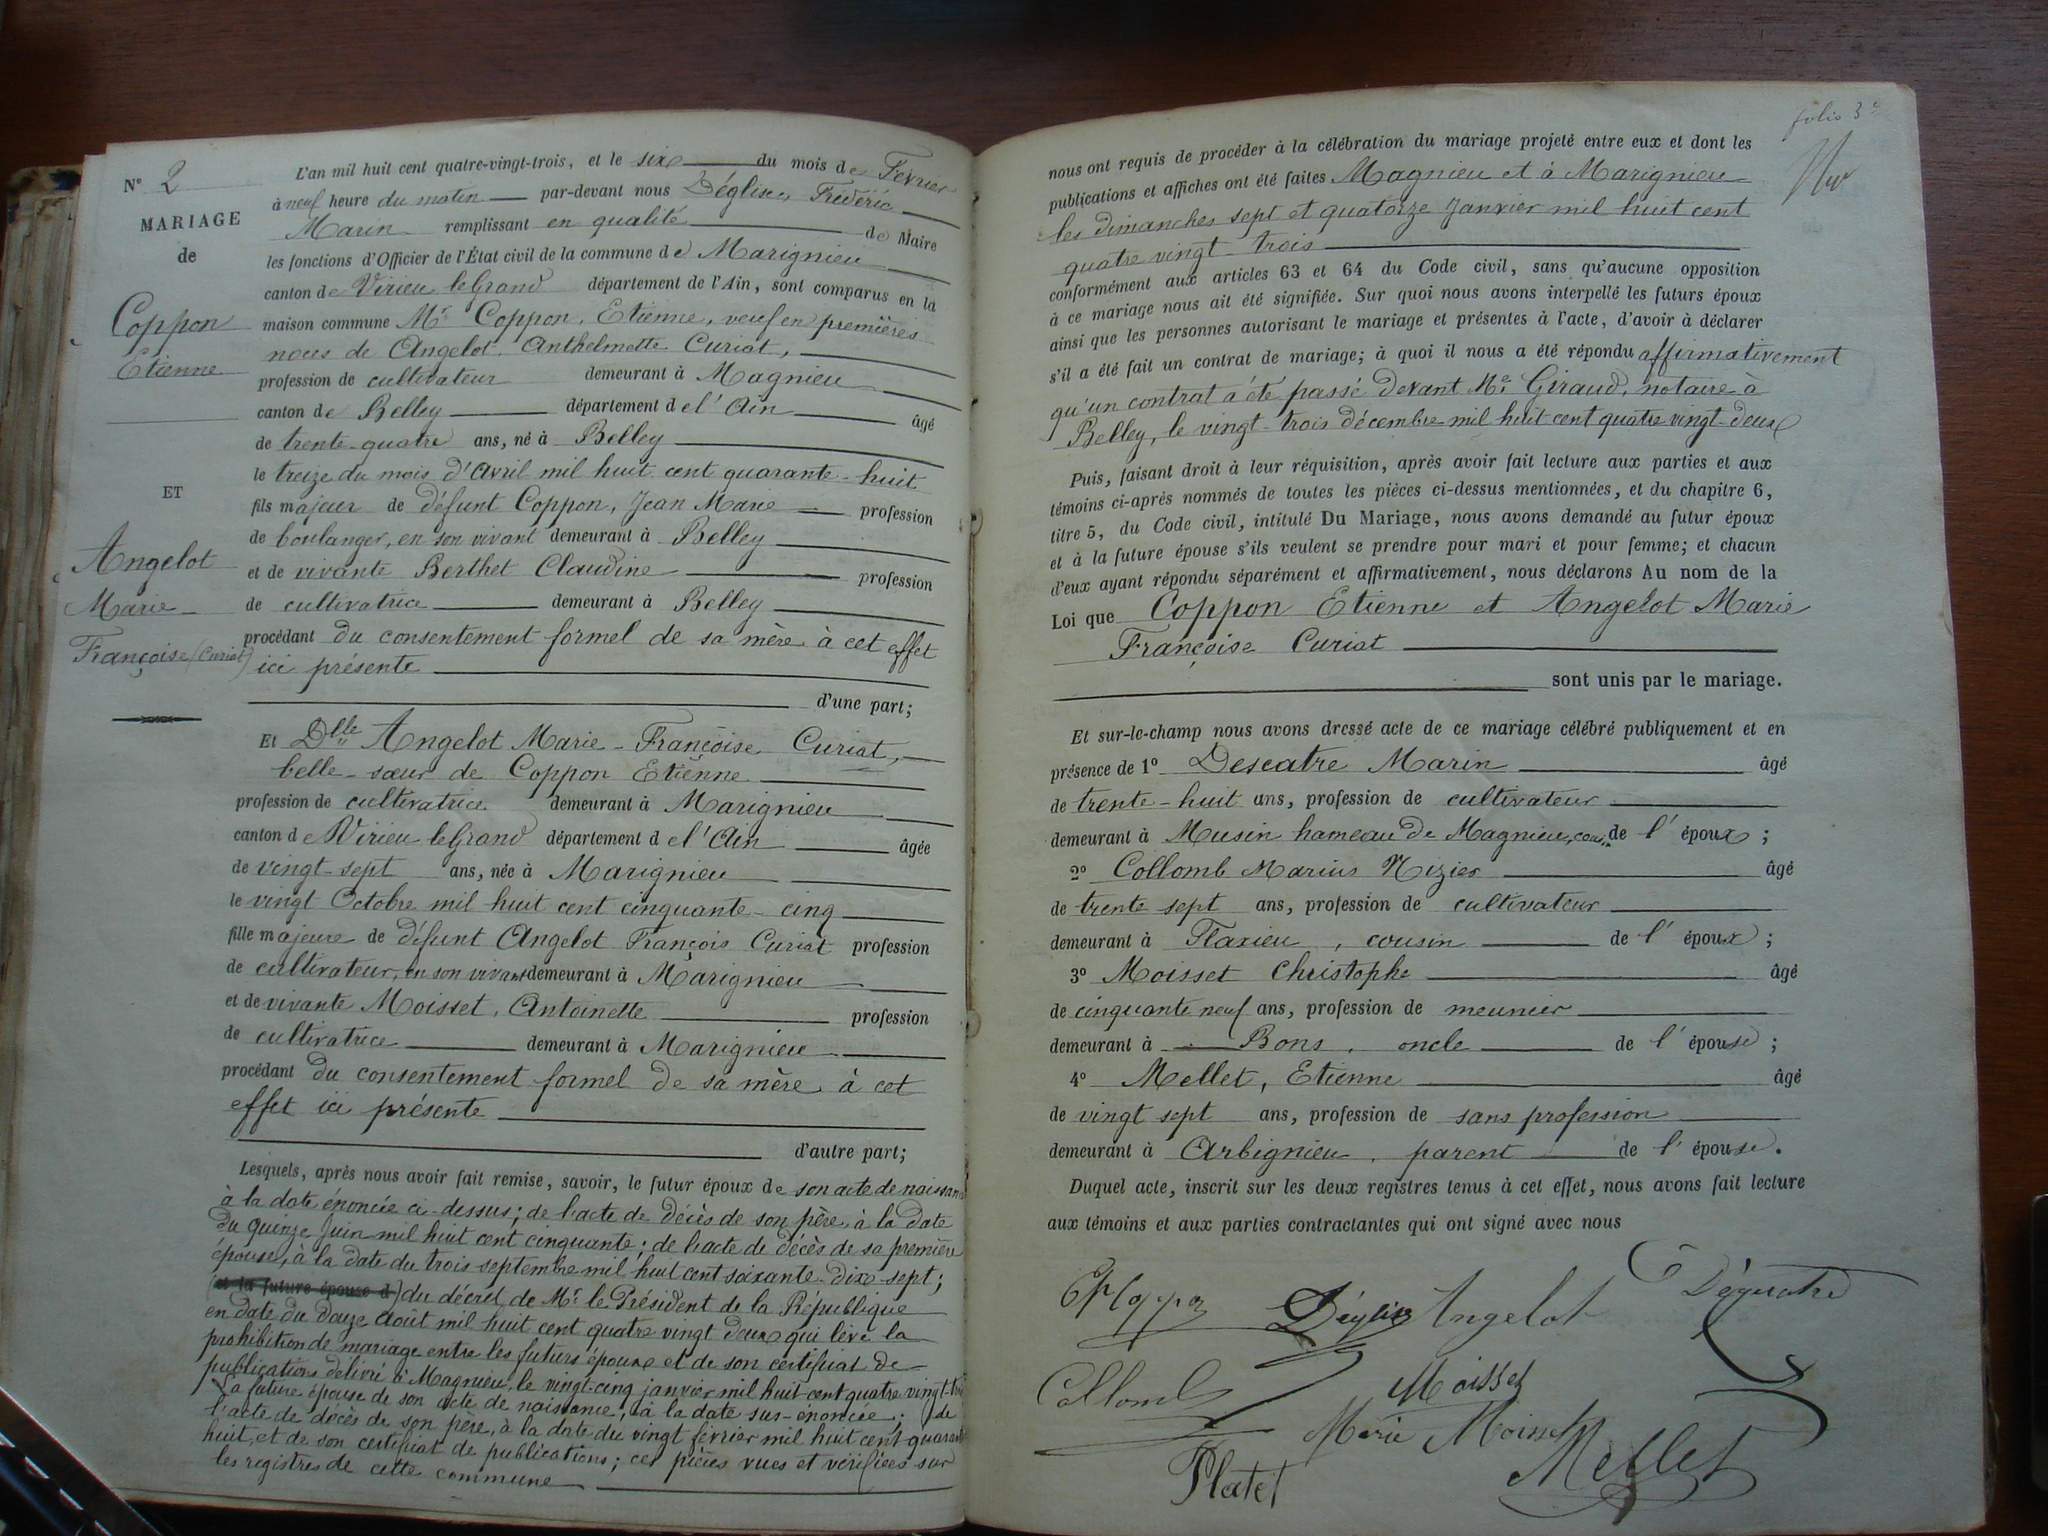 N° 2
MARIAGE
de
Coppon
Etienne
ET
Angelot
Marie
Françoise (Curiat)
L'an mil huit cent quatre-vingt-trois, et le six du mois de Février
à neuf heure du matin par-devant nous Déglise, Frédéric
Marin remplissant en qualité de Maire
les fonctions d'Officier de l'État civil de la commune de Marignieu
canton de Virieu le Grand département de l'Ain, sont comparus en la
maison commune Mr Coppon, Etienne, veuf en premières
noces de Angelot Anthelmette Curiat,
profession de cultivateur demeurant à Magnieu
canton de Belley département de l'Ain âgé
de trente-quatre ans, né à Belley
le treize du mois d'Avril mil huit cent quarante-huit
fils majeur de défunt Coppon, Jean Marie profession
de boulanger, en son vivant demeurant à Belley
et de vivante Berthet Claudine profession
de cultivatrice demeurant à Belley
procédant du consentement formel de sa mère à cet effet
ici présente
d'une part;
Et Dlle Angelot Marie-Françoise Curiat,
belle-sœur de Coppon Etienne
profession de cultivatrice demeurant à Marignieu
canton de Virieu le Grand département de l'Ain âgée
de vingt-sept ans, née à Marignieu
le vingt Octobre mil huit cent cinquante-cinq
fille majeure de défunt Angelot François Curiat profession
de cultivateur, en son vivant demeurant à Marignieu
et de vivante Moisset, Antoinette profession
de cultivatrice demeurant à Marignieu
procédant du consentement formel de sa mère à cet
effet ici présente
d'autre part;
Lesquels, après nous avoir fait remise, savoir, le futur époux de son acte de naissan
à la date énoncée ci-dessus; de l'acte de décès de son père, à la date
du quinze Juin mil huit cent cinquante; de l'acte de décès de sa première
épouse, à la date du trois septembre mil huit cent soixante-dix-sept;
(et la future épouse d) du décret de Mr le Président de la République
en date du douze Août mil huit cent quatre vingt deux qui lève la
prohibition de mariage entre les futurs époux et de son certificat de
publications délivré à Magnieu, le vingt-cinq janvier mil huit cent quatre vingt-tr
La future épouse de son acte de naissance, à la date sus-énoncée; de
l'acte de décès de son père, à la date du vingt février mil huit cent quaran
huit, et de son certificat de publications; ces pièces vues et vérifiées sur
les registres de cette commune
folio 3e
nous ont requis de procéder à la célébration du mariage projeté entre eux et dont les
publications et affiches ont été faites Magnieu et à Marignieu
les dimanches sept et quatorze Janvier mil huit cent
quatre vingt-trois
conformément aux articles 63 et 64 du Code civil, sans qu'aucune opposition
à ce mariage nous ait été signifiée. Sur quoi nous avons interpellé les futurs époux
ainsi que les personnes autorisant le mariage et présentes à l'acte, d'avoir à déclarer
s'il a été fait un contrat de mariage; à quoi il nous a été répondu affirmativement
qu'un contrat a été passé devant Me Giraud, notaire à
Belley, le vingt-trois décembre mil huit cent quatre vingt-deux
Puis, faisant droit à leur réquisition, après avoir fait lecture aux parties et aux
témoins ci-après nommés de toutes les pièces ci-dessus mentionnées, et du chapitre 6,
titre 5, du Code civil, intitulé Du Mariage, nous avons demandé au futur époux
et à la future épouse s'ils veulent se prendre pour mari et pour femme; et chacun
d'eux ayant répondu séparément et affirmativement, nous déclarons Au nom de la
Loi que Coppon Etienne et Angelot Marie
Françoise Curiat
sont unis par le mariage.
Et sur-le-champ nous avons dressé acte de ce mariage célébré publiquement et en
présence de 1° Descatre Marin âgé
de trente-huit ans, profession de cultivateur
demeurant à Musin hameau de Magnieu, cou. de l'époux;
2° Collomb Marius Nizier âgé
de trente sept ans, profession de cultivateur
demeurant à Flaxieu, cousin de l'époux;
3° Moisset Christophe âgé
de cinquante neuf ans, profession de meunier
demeurant à Bons, oncle de l'épouse;
4° Mellet, Etienne âgé
de vingt sept ans, profession de sans profession
demeurant à Arbignieu, parent de l'épouse.
Duquel acte, inscrit sur les deux registres tenus à cet effet, nous avons fait lecture
aux témoins et aux parties contractantes qui ont signé avec nous
Déglise Angelot
Collomb Moisset
Marie Moisset
Platet Mellet